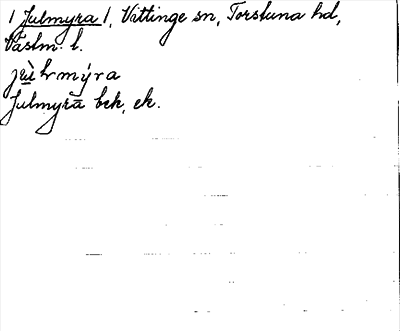 / Julmyra /, Vittinge sn, Torstuna hd,
Västm. l.
Julmyra bek, ek.